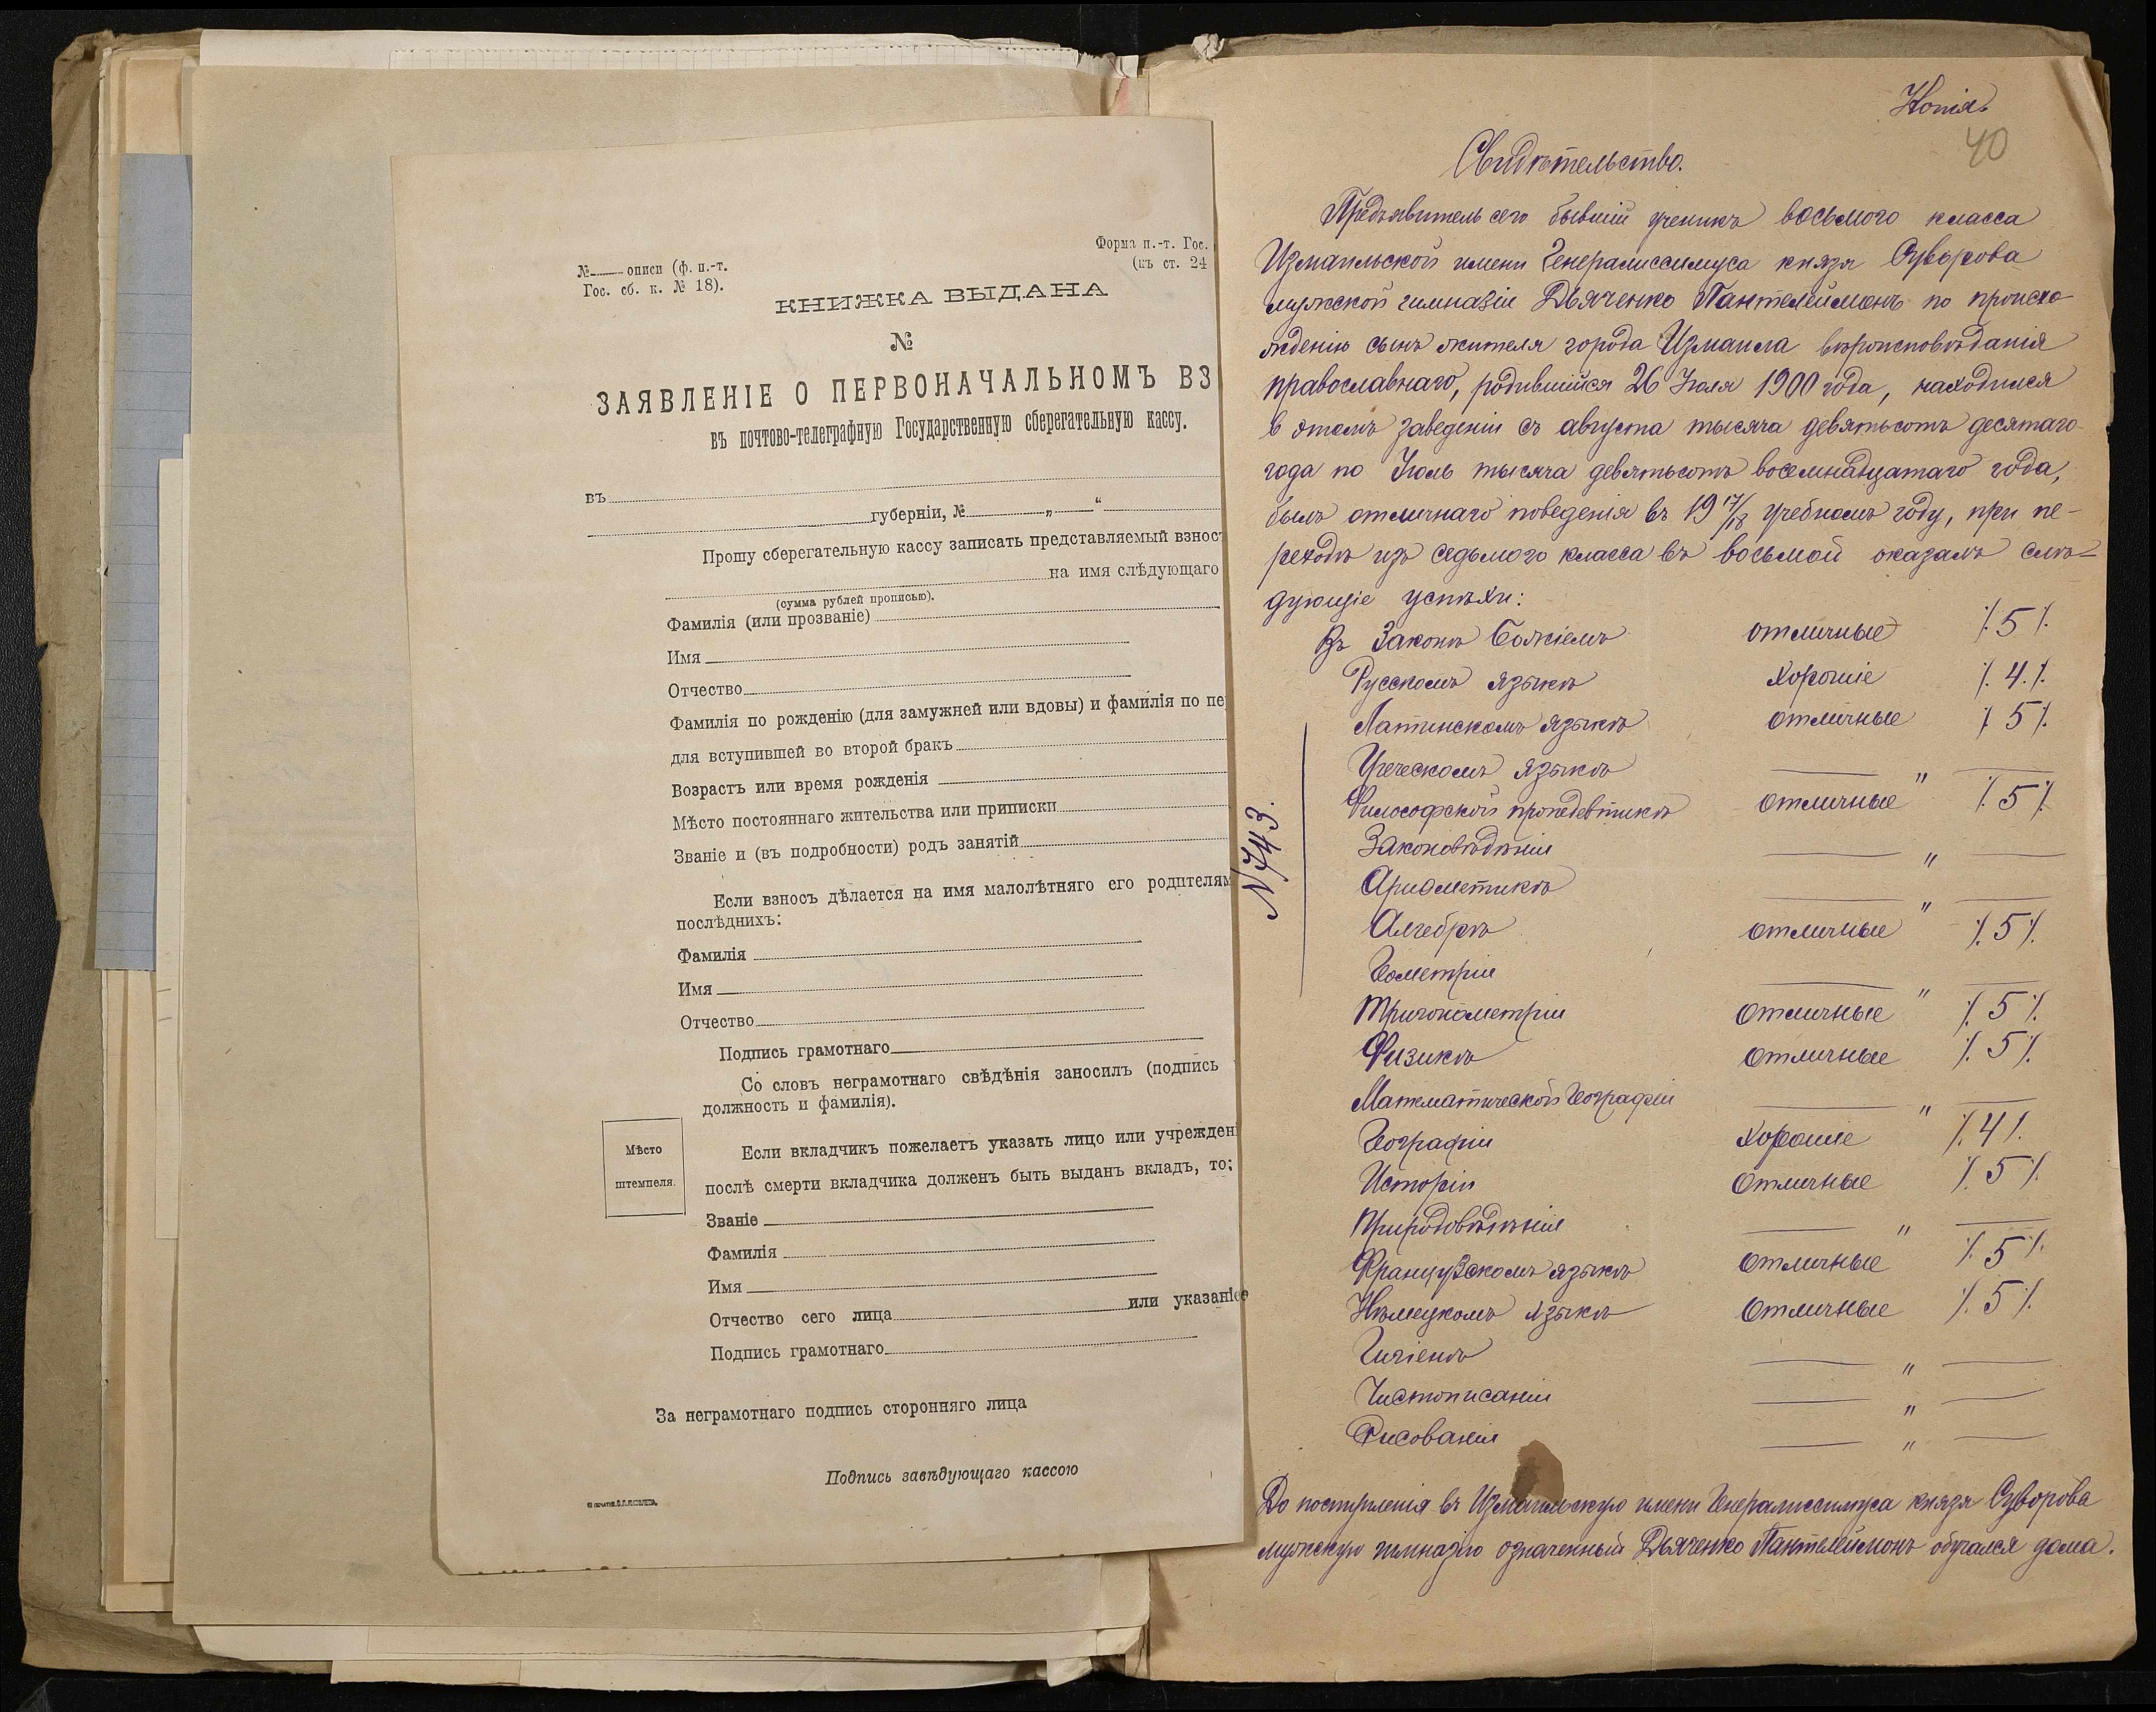 № описи (ф. п.-т.
Гос. сб. к. № 18).
Форма п.-т. Гос.
(къ ст. 24
КНИЖКА ВЫДАНА
№
ЗАЯВЛЕНІЕ О ПЕРВОНАЧАЛЬНОМЪ ВЗ
въ почтово-телеграфную Государственную сберегательную кассу.
въ
губерніи, № „ “
Прошу сберегательную кассу записать представляемый взнос
на имя слѣдующаго
(сумма рублей прописью).
Фамилія (или прозваніе)
Имя
Отчество
Фамилія по рожденію (для замужней или вдовы) и фамилія по пе
для вступившей во второй бракъ
Возрастъ или время рожденія
Мѣсто постояннаго жительства или приписки
Званіе и (въ подробности) родъ занятій
Если взносъ дѣлается на имя малолѣтняго его родителям
послѣднихъ:
Фамилія
Имя
Отчество
Подпись грамотнаго
Со словъ неграмотнаго свѣдѣнія заносилъ (подпись
должность и фамилія).
Мѣсто
штемпеля.
Если вкладчикъ пожелаетъ указать лицо или учрежден
послѣ смерти вкладчика долженъ быть выданъ вкладъ, то:
Званіе
Фамилія
Имя
Отчество сего лица или указаніе
Подпись грамотнаго
За неграмотнаго подпись сторонняго лица
Подпись завѣдующаго кассою
Копія.
40
Свидѣтельство.
Предъявитель сего бывшій ученикъ восьмого класса
Измаильской имени Генералиссимуса князя Суворова
мужской гимназіи Дьяченко Пантелеймонъ по происхо-
жденію сынъ жителя города Измаила вѣроисповѣданія
православнаго, родившійся 26 Іюля 1900 года, находился
в этомъ заведеніи съ августа тысяча девятьсотъ десятаго
года по Іюль тысяча девятьсотъ восемнадцатаго года,
былъ отличнаго поведенія въ 19 17/18 учебномъ году, при пе-
реходѣ изъ седьмого класса въ восьмой оказалъ слѣ-
дующіе успѣхи:
Въ Законѣ Божіемъ отличные ⁒ 5 ⁒
Русскомъ языкѣ хорошіе ⁒ 4 ⁒
Латинскомъ языкѣ отличные ⁒ 5 ⁒
Греческомъ языкѣ — " —
Философской пропедевтикѣ отличные ⁒ 5 ⁒
Законовѣдѣніи — " —
Ариѳметикѣ — " —
Алгебрѣ отличные ⁒ 5 ⁒
Геометріи — " —
Тригонометріи отличные ⁒ 5 ⁒
Физикѣ отличные ⁒ 5 ⁒
Математической Географіи — " —
Географіи хорошіе ⁒ 4 ⁒
Исторіи отличные ⁒ 5 ⁒
Природовѣдѣнія — " —
Французскомъ языкѣ отличные ⁒ 5 ⁒
Нѣмецкомъ языкѣ отличные ⁒ 5 ⁒
Гигіенѣ — " —
Чистописаніи — " —
Рисованія — " —
N 743.
До поступленія въ Измаильскую имени Генералиссимуса князя Суворова
мужскую гимназію означенный Дьяченко Пантелеймонъ обучался дома.